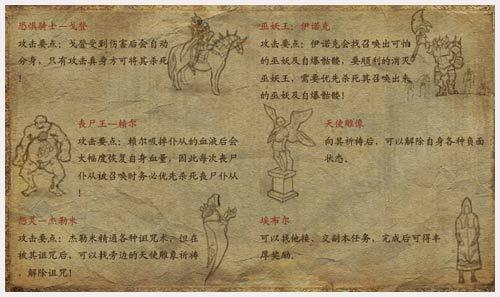 恐惧骑士—戈登
攻击要点：戈登受到伤害后会自动
分身，只有攻击真身方可将其杀死
！
巫妖王：伊诺克
攻击要点：伊诺克会找召唤出可怕
的巫妖及自爆骷髅，要顺利的消灭
巫妖王，需要优先杀死其召唤出来
的巫妖及自爆骷髅！
丧尸王—赖尔
攻击要点：赖尔吸摔仆从的血液后会
大幅度恢复自身血量，因此每次丧尸
仆从被召唤时务必优先杀死丧尸仆从
！
天使雕像
向其祈祷后，可以解除自身各种负面
状态。
怨灵—杰勒米
攻击要点：杰勒米精通各种诅咒术，但在
被其诅咒后，可以找旁边的天使雕象祈祷
，解除诅咒！
埃布尔
可以找他接、交副本任务，完成后可得丰
厚奖励。